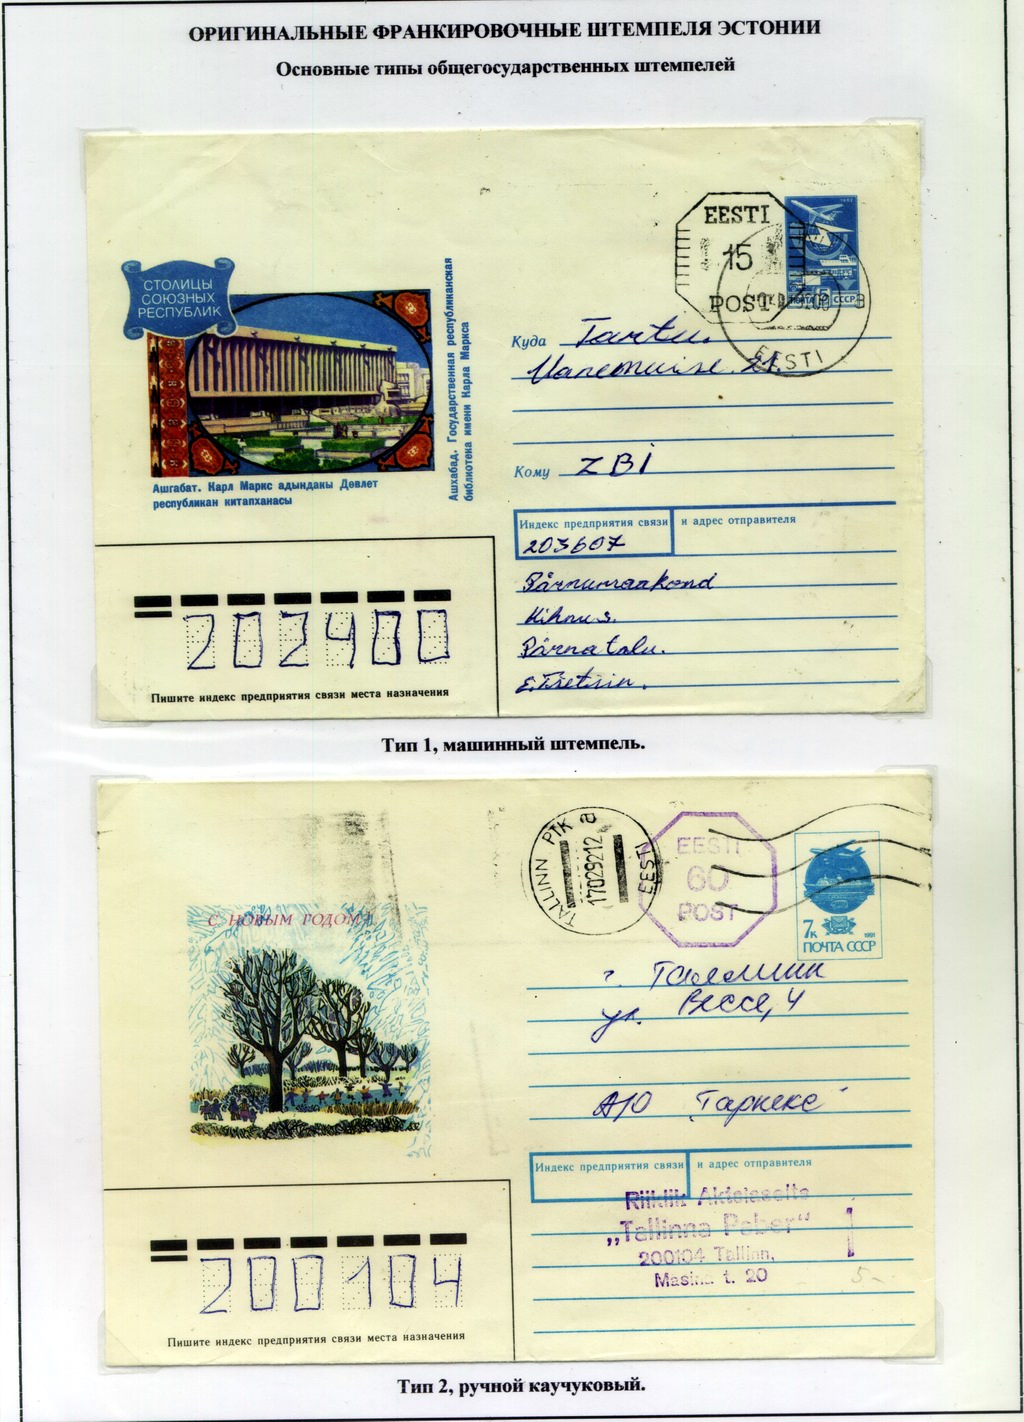 ОРИГИНАЛЬНЫЕ ФРАНКИРОВОЧНЫЕ ШТЕМПЕЛЯ ЭСТОНИИ
Основные типы общегосударственных штемпелей
EESTI
15
POST
ПОЧТА 5 СССР
EESTI
СТОЛИЦЫ
СОЮЗНЫХ
РЕСПУБЛИК
Ашхабад. Государственная республиканская
библиотека имени Карла Маркса
Ашгабат. Карл Маркс адындакы Дөвлет
республикан китапханасы
Куда Tartu.
Vanemuise 21.
Кому ZBI
Индекс предприятия связи и адрес отправителя
203607
Pärnumaakond
Kihnu s.
Pärna talu.
E. Tsetsin.
202400
Пишите индекс предприятия связи места назначения
Тип 1, машинный штемпель.
TALLINN PTK a
17029212
EESTI
EESTI
60
POST
7к 1991
ПОЧТА СССР
С НОВЫМ ГОДОМ!
г. Таллинн
ул. Вессе, 4
А/О "Тарнекс"
Индекс предприятия связи и адрес отправителя
Riiklik Aktsiaselts
„Tallinna Paber“ 1
200104 Tallinn,
t. 20
5-
200104
Пишите индекс предприятия связи места назначения
Тип 2, ручной каучуковый.